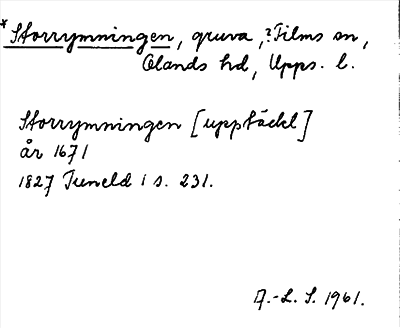 *Storrymningen, gruva, ?Films sn,
Olands hd, Upps. l.
Storrymningen [upptäckt]
år 1671
1827 Tuneld 1 s. 231.
A.-L. S. 1961.